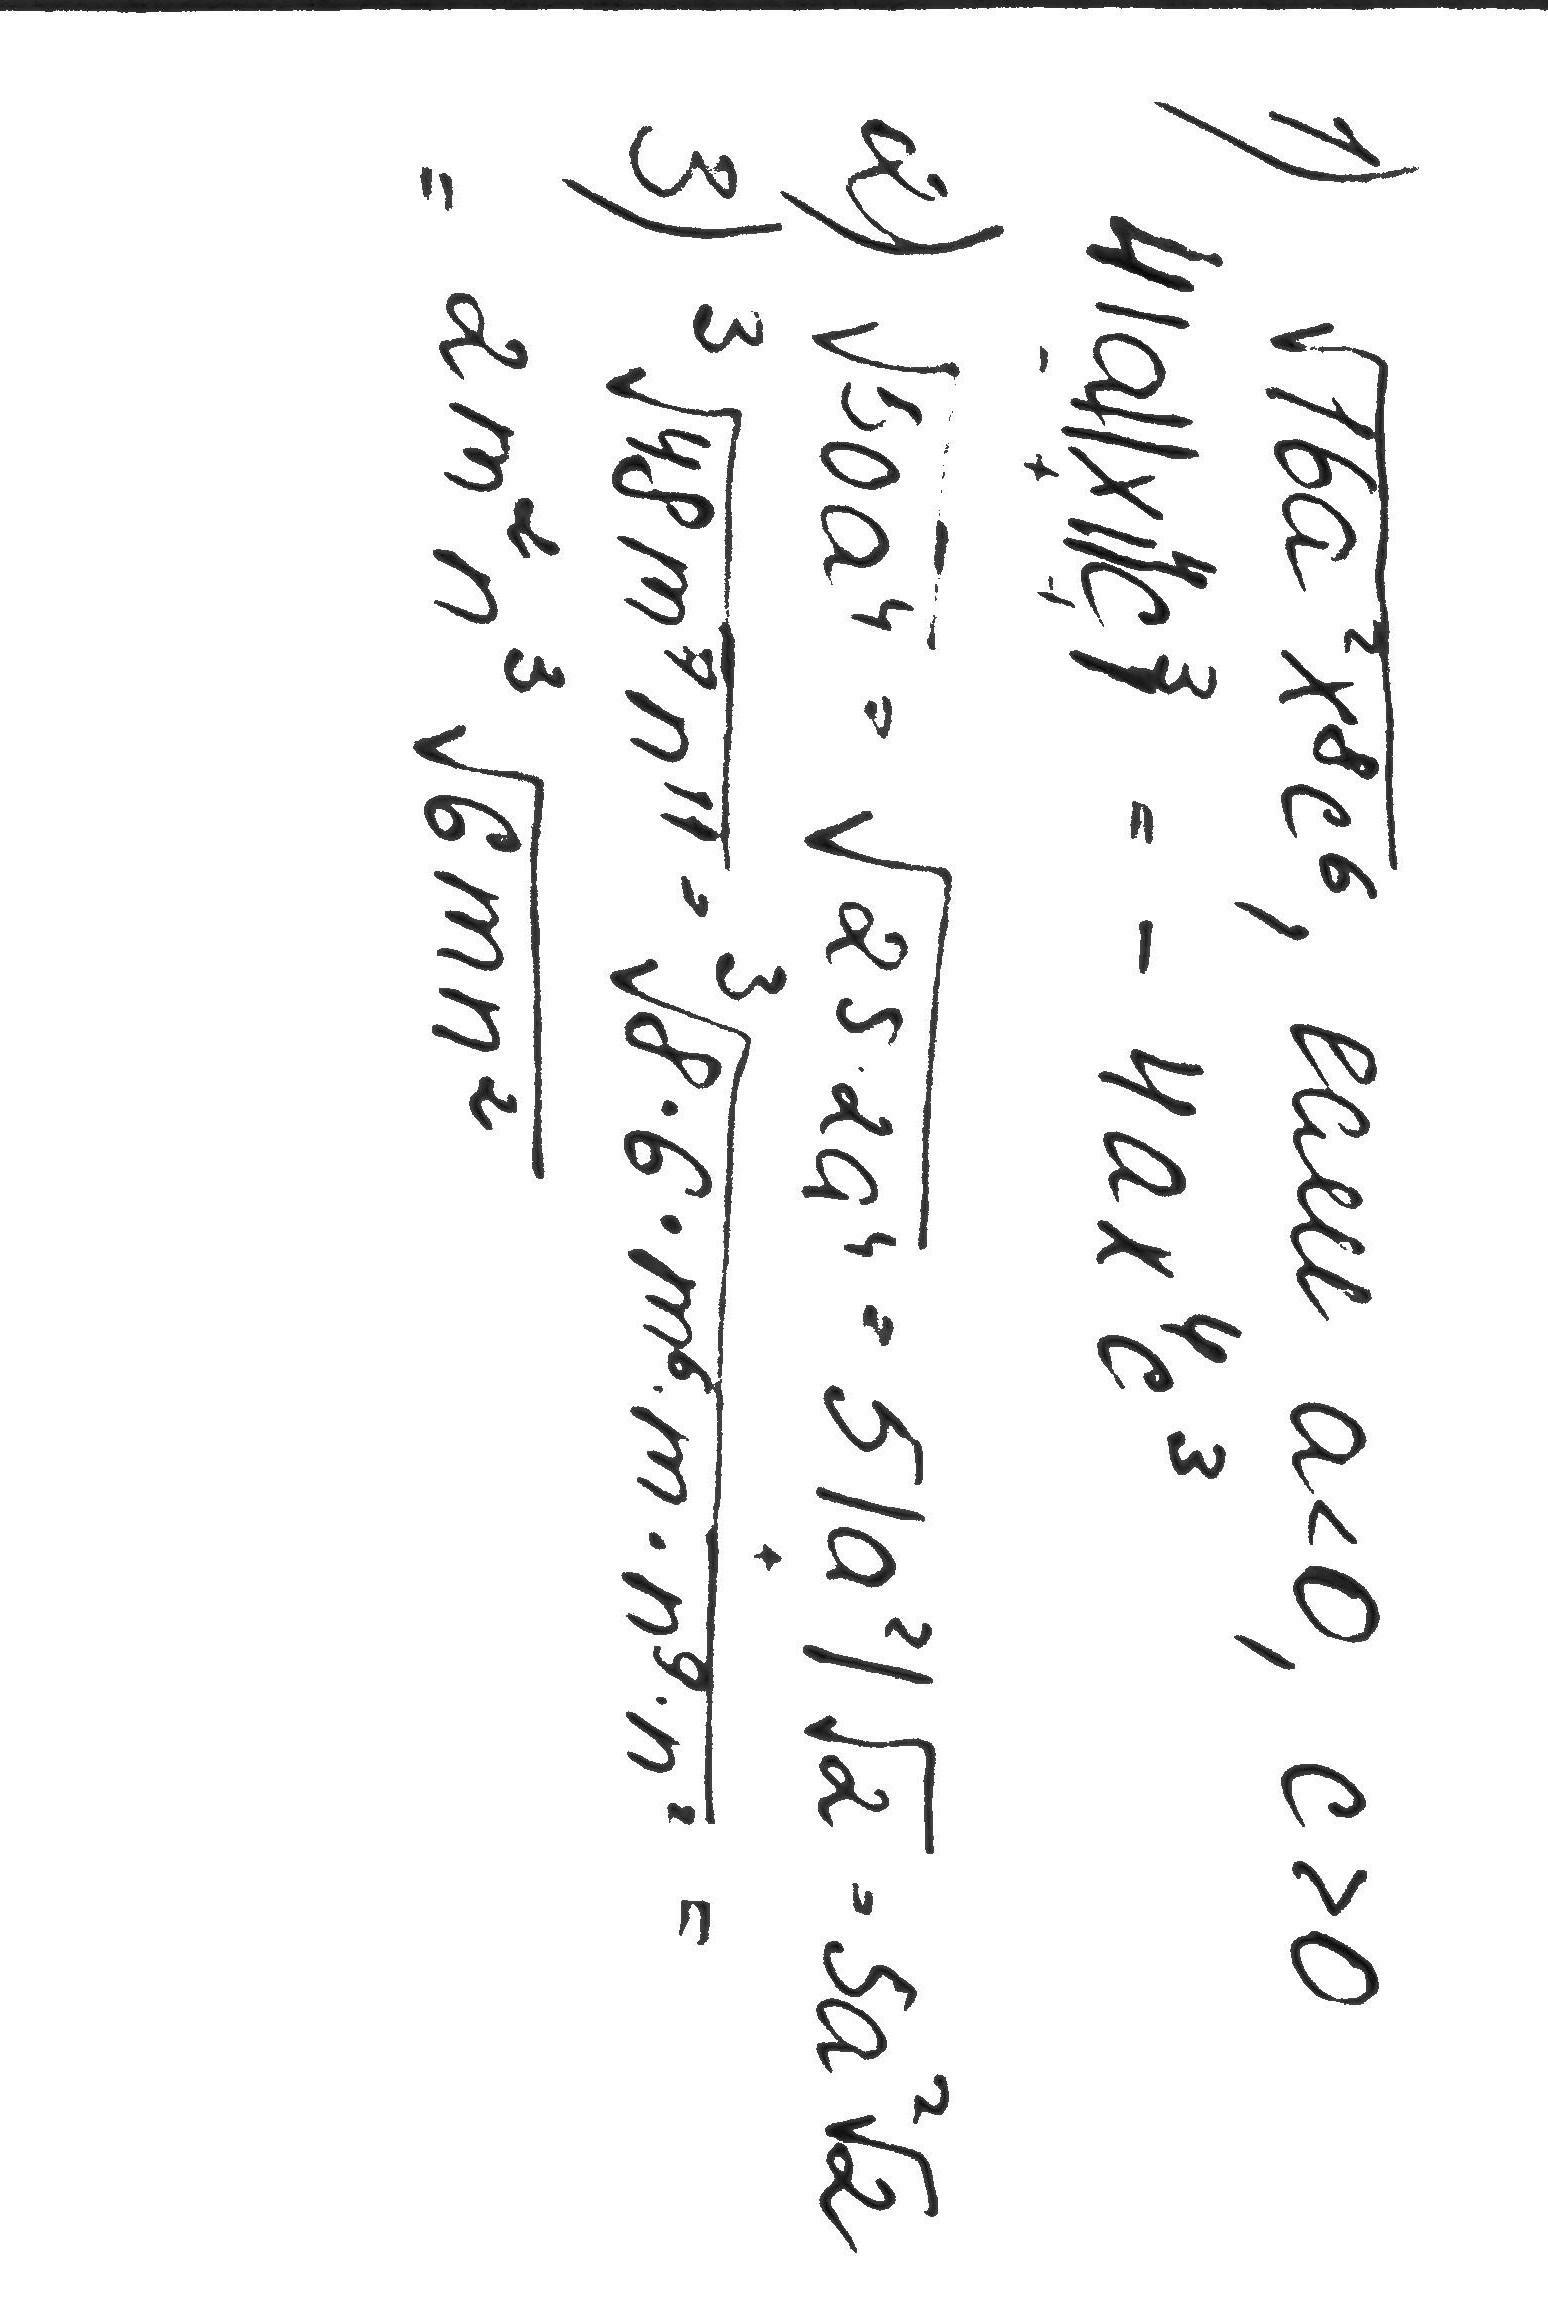 1) √16a²x⁸c⁶, если a<0, c>0
4|a||x⁴||c³| = - 4ax⁴c³
- + +
2) √50a⁴ = √25·2a⁴ = 5|a²|√2 = 5a²√2
+
3) ³√48m⁷n¹¹ = ³√8·6·m⁶·m·n⁹·n² =
= 2m²n³√6mn²